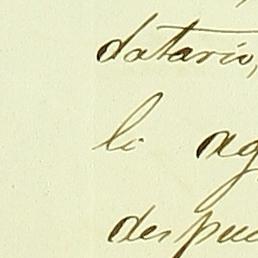 datario,
li ag
despue